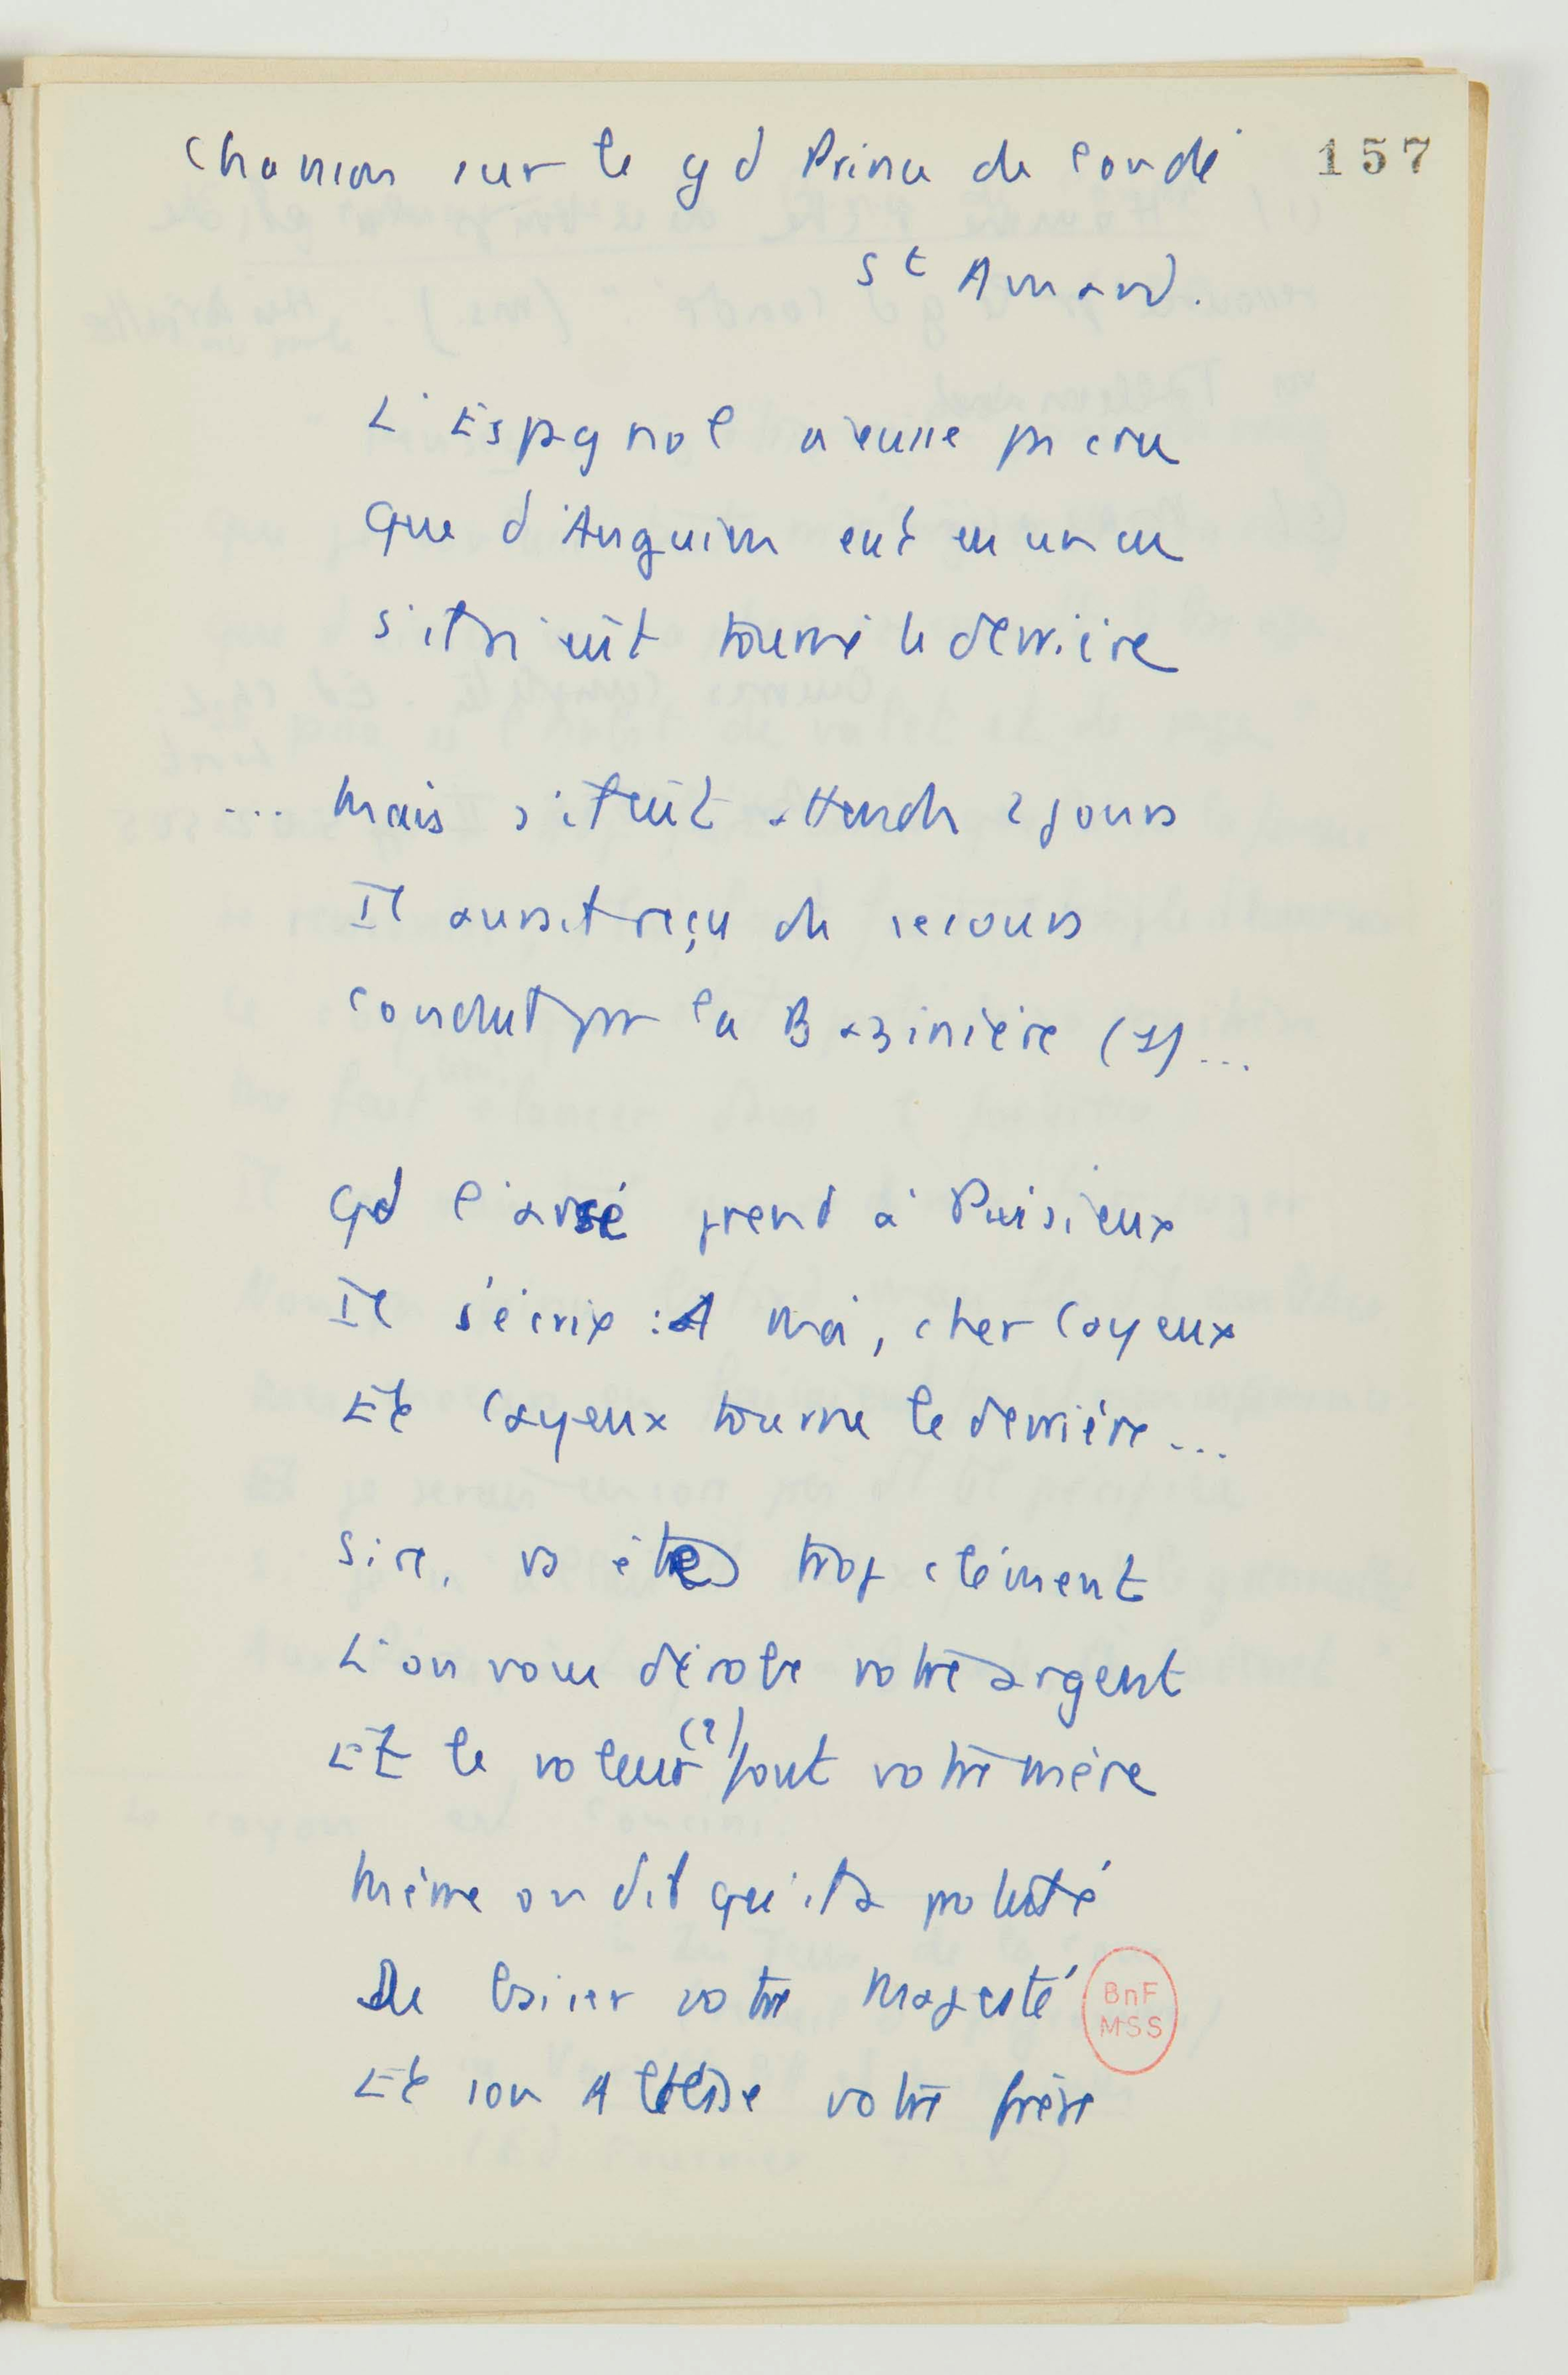 Chanson sur le gd Prince de Condé
157
St Amand.
L'Espagnol n'eusse pas cru
Que d'Anguien eut eu un cu
S'il n'eût tourné le derrière
... Mais s'il eût attendu 2 jours
Il aurait reçu du secours
Conduit par la Bazinière (1)...
Qd l'arsé prend à Puisieux
Il s'écrie : A moi, cher Cayeux
Et Cayeux tourne le derrière...
Sire, vs êtes trop clément
L'on vous dérobe votre argent
Et le voleur (2) fout votre mère
Même on dit qu'il a protesté
De baiser votre Majesté
Et son Altesse votre frère
BnF
MSS